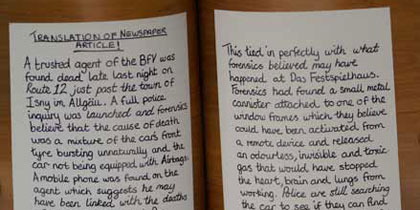 TRANSLATION OF NEWSPAPER
ARTICLE!
A trusted agent of the BfV was
found dead late last night on
Route 12 just past the town of
Isny im Allgäu. A full police
inquiry was launched and forensics
believe that the cause of death
was a mixture of the cars front
tyre bursting unnaturally and the
car not being equipped with Airbags.
A mobile phone was found on the
agent which suggests he may
have been linked with the deaths
This tied in perfectly with what
forensics believed may have
happened at Das Festspielhaus.
Forensics had found a small metal
cannister attached to one of the
window frames which they believe
could have been activated from
a remote device and released
an odourless, invisible and toxic
gas that would have stopped
the heart, brain and lungs from
working. Police are still searching
the car to see if they can find